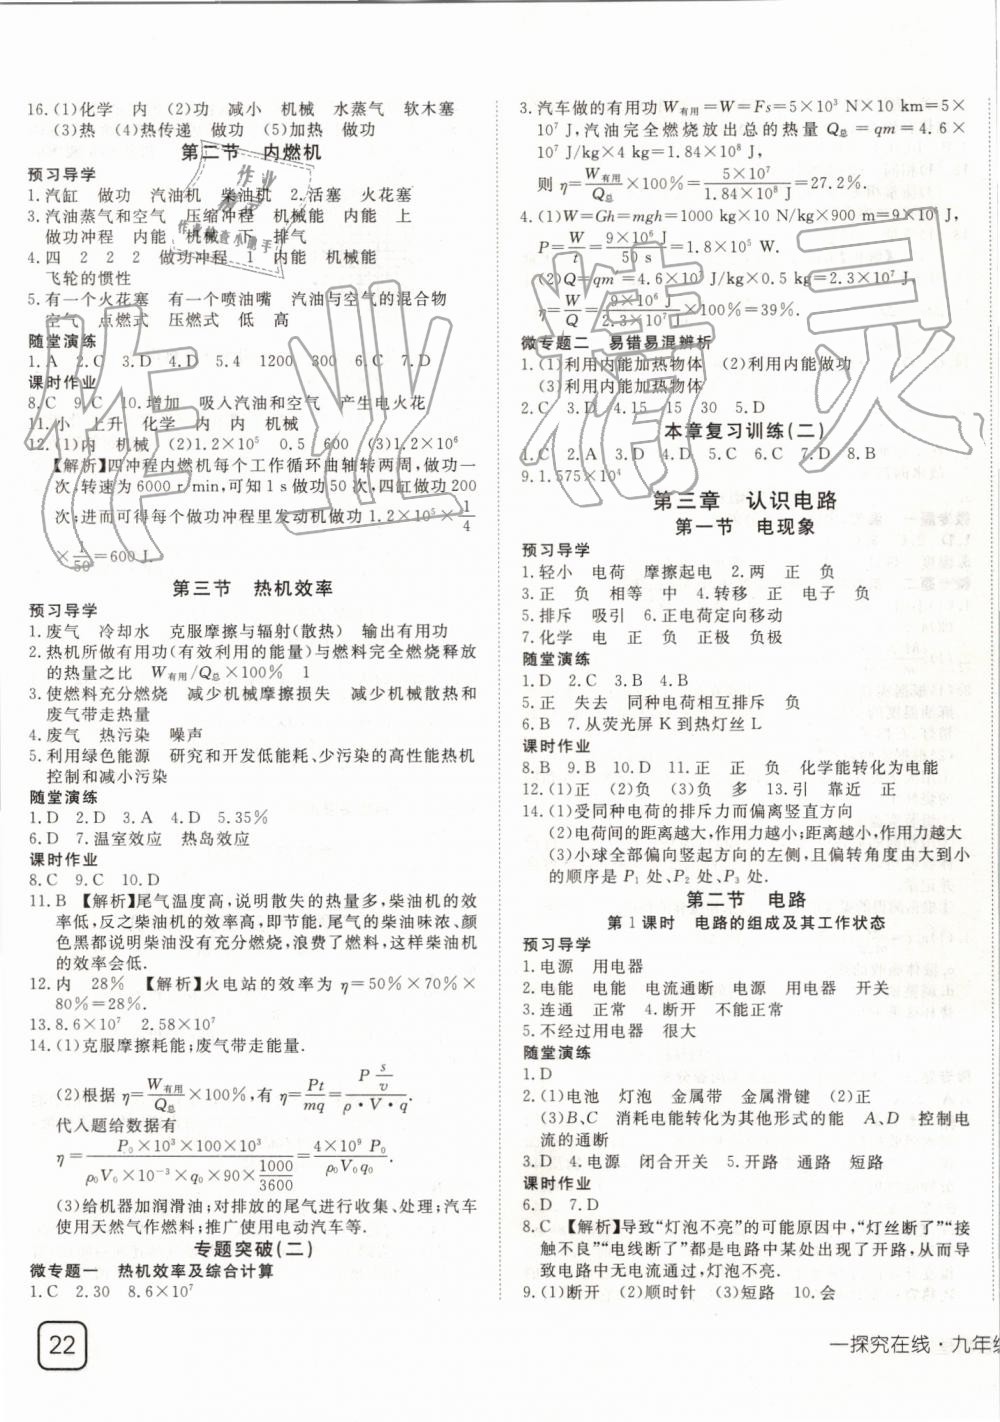 16.(1)化学　内　(2)功　减小　机械　水蒸气　软木塞
(3)热　(4)热传递　做功　(5)加热　做功
第二节　内燃机
预习导学
1.汽缸　做功　汽油机　柴油机　2.活塞　火花塞
3.汽油蒸气和空气　压缩冲程　机械能　内能　上
做功冲程　内能　机械能　下　排气
4.四　2　2　2　做功冲程　1　内能　机械能
飞轮的惯性
5.有一个火花塞　有一个喷油嘴　汽油与空气的混合物
空气　点燃式　压燃式　低　高
随堂演练
1.A　2.C　3.D　4.D　5.4　1200　300　6.C　7.D
课时作业
8.C　9.C　10.增加　吸入汽油和空气　产生电火花
11.小　上升　化学　内　内　机械能
12.(1)内　机械　(2)1.2×10⁵　0.5　600　(3)1.2×10⁶
【解析】四冲程内燃机每个工作循环曲轴转两周,做功一
次;转速为6000 r/min,可知1 s做功50次,四缸做功200
次;进而可得每个做功冲程里发动机做功1.2×10⁵×1/4
×1/50=600 J.
第三节　热机效率
预习导学
1.废气　冷却水　克服摩擦与辐射(散热)　输出有用功
2.热机所做有用功(有效利用的能量)与燃料完全燃烧释放
的热量之比　W有用/Q总×100%　1
3.使燃料充分燃烧　减少机械摩擦损失　减少机械散热和
废气带走热量
4.废气　热污染　噪声
5.利用绿色能源　研究和开发低能耗、少污染的高性能热机
控制和减小污染
随堂演练
1.D　2.D　3.A　4.D　5.35%
6.D　7.温室效应　热岛效应
课时作业
8.C　9.C　10.D
11.B　【解析】尾气温度高,说明散失的热量多,柴油机的效
率低,反之柴油机的效率高,即节能.尾气的柴油味浓、颜
色黑大都说明柴油没有充分燃烧,浪费了燃料,这样柴油机
的效率会低.
12.内　28%　【解析】火电站的效率为η=50%×70%×
80%=28%.
13.8.6×10⁷　2.58×10⁷
14.(1)克服摩擦耗能;废气带走能量.
(2)根据η=W有用/Q总×100%,有η=Pt/mq=P s/v/ρ·V·q.
代入题给数据有
η=P₀×10³×100×10³/ρ₀V₀×10⁻³×q₀×90×1000/3600=4×10⁹ P₀/ρ₀V₀q₀.
(3)给机器加润滑油;对排放的尾气进行收集、处理;汽车
使用天然气作燃料;推广使用电动汽车等.
专题突破(二)
微专题一　热机效率及综合计算
1.C　2.30　8.6×10⁷
22
3.汽车做的有用功W有用=W=Fs=5×10³ N×10 km=5×
10⁷ J,汽油完全燃烧放出总的热量Q总=qm=4.6×10⁷
J/kg×4 kg=1.84×10⁸ J,
则η=W有用/Q总×100%=5×10⁷/1.84×10⁸ J=27.2%.
4.(1)W=Gh=mgh=1000 kg×10 N/kg×900 m=9×10⁶ J,
P=W/t=9×10⁶ J/50 s=1.8×10⁵ W.
(2)Q=qm=4.6×10⁷ J/kg×0.5 kg=2.3×10⁷ J,
η=W/Q=9×10⁶ J/2.3×10⁷ J×100%=39%.
微专题二　易错易混辨析
1.(1)利用内能加热物体　(2)利用内能做功
(3)利用内能加热物体
2.C　3.D　4.15　15　30　5.D
本章复习训练(二)
1.C　2.A　3.D　4.D　5.C　6.C　7.D　8.B
9.1.575×10⁴
第三章　认识电路
第一节　电现象
预习导学
1.轻小　电荷　摩擦起电　2.两　正　负
3.正　负　相等　中　4.转移　正　电子　负
5.排斥　吸引　6.正电荷定向移动
7.化学　电　正　负　正极　负极
随堂演练
1.D　2.C　3.B　4.B
5.正　失去　同种电荷相互排斥　负
6.B　7.从荧光屏K到热灯丝L
课时作业
8.B　9.B　10.D　11.正　正　负　化学能转化为电能
12.(1)正　(2)负　(3)负　多　13.引　靠近　正
14.(1)受同种电荷的排斥力而偏离竖直方向
(2)电荷间的距离越大,作用力越小;距离越小,作用力越大
(3)小球全部偏向竖起方向的左侧,且偏转角度由大到小
的顺序是P₁处、P₂处、P₃处.
第二节　电路
第1课时　电路的组成及其工作状态
预习导学
1.电源　用电器
2.电能　电能　电流通断　电源　用电器　开关
3.连通　正常　4.断开　不能正常
5.不经过用电器　很大
随堂演练
1.D
2.(1)电池　灯泡　金属带　金属滑键　(2)正
(3)B、C　消耗电能转化为其他形式的能　A、D　控制电
流的通断
3.D　4.电源　闭合开关　5.开路　通路　短路
课时作业
6.D　7.D
8.C　【解析】导致“灯泡不亮”的可能原因中,“灯丝断了”“接
触不良”“电线断了”都是电路中某处出现了开路,从而导
致电路中无电流通过,灯泡不亮.
9.(1)断开　(2)顺时针　(3)短路　10.会
一探究在线·九年级
作业精灵